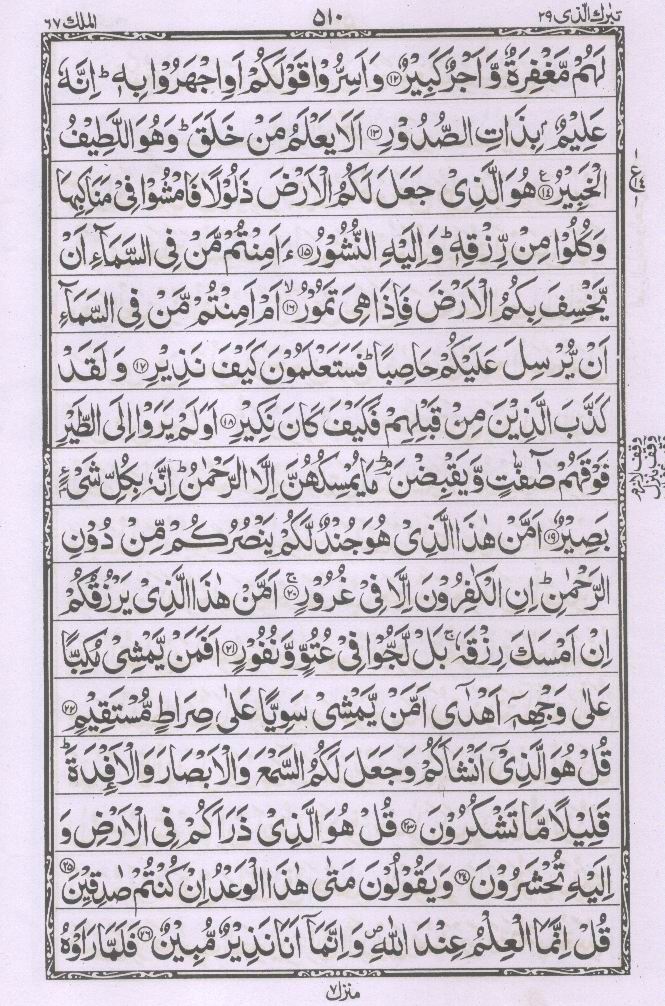 تبٰرك الّذى ٢٩ ٥١٠ الملك ٦٧
لَهُمْ مَّغْفِرَةٌ وَّاَجْرٌ كَبِيْرٌ ١٢ وَاَسِرُّوْا قَوْلَكُمْ اَوِ اجْهَرُوْا بِهٖ ؕ اِنَّهٗ
عَلِيْمٌۢ بِذَاتِ الصُّدُوْرِ ١٣ اَلَا يَعْلَمُ مَنْ خَلَقَ ؕ وَهُوَ اللَّطِيْفُ
الْخَبِيْرُ ١٤ ع هُوَ الَّذِىْ جَعَلَ لَكُمُ الْاَرْضَ ذَلُوْلًا فَامْشُوْا فِىْ مَنَاكِبِهَا
ع ١٤
وَكُلُوْا مِنْ رِّزْقِهٖ ؕ وَاِلَيْهِ النُّشُوْرُ ١٥ ءَاَمِنْتُمْ مَّنْ فِى السَّمَآءِ اَنْ
يَّخْسِفَ بِكُمُ الْاَرْضَ فَاِذَا هِىَ تَمُوْرُ ۙ ١٦ اَمْ اَمِنْتُمْ مَّنْ فِى السَّمَآءِ
اَنْ يُّرْسِلَ عَلَيْكُمْ حَاصِبًا ؕ فَسَتَعْلَمُوْنَ كَيْفَ نَذِيْرِ ١٧ وَلَقَدْ
كَذَّبَ الَّذِيْنَ مِنْ قَبْلِهِمْ فَكَيْفَ كَانَ نَكِيْرِ ١٨ اَوَلَمْ يَرَوْا اِلَى الطَّيْرِ
فَوْقَهُمْ صٰٓفّٰتٍ وَّيَقْبِضْنَ ؕ مَا يُمْسِكُهُنَّ اِلَّا الرَّحْمٰنُ ؕ اِنَّهٗ بِكُلِّ شَىْءٍۢ
بَصِيْرٌ ١٩ اَمَّنْ هٰذَا الَّذِىْ هُوَ جُنْدٌ لَّكُمْ يَنْصُرُكُمْ مِّنْ دُوْنِ
الرَّحْمٰنِ ؕ اِنِ الْكٰفِرُوْنَ اِلَّا فِىْ غُرُوْرٍ ۚ ٢٠ اَمَّنْ هٰذَا الَّذِىْ يَرْزُقُكُمْ
اِنْ اَمْسَكَ رِزْقَهٗ ۚ بَلْ لَّجُّوْا فِىْ عُتُوٍّ وَّنُفُوْرٍ ٢١ اَفَمَنْ يَّمْشِىْ مُكِبًّا
عَلٰى وَجْهِهٖٓ اَهْدٰٓى اَمَّنْ يَّمْشِىْ سَوِيًّا عَلٰى صِرَاطٍ مُّسْتَقِيْمٍ ٢٢
قُلْ هُوَ الَّذِىْٓ اَنْشَاَكُمْ وَجَعَلَ لَكُمُ السَّمْعَ وَالْاَبْصَارَ وَالْاَفْـِٕدَةَ ؕ
قَلِيْلًا مَّا تَشْكُرُوْنَ ٢٣ قُلْ هُوَ الَّذِىْ ذَرَاَكُمْ فِى الْاَرْضِ وَ
اِلَيْهِ تُحْشَرُوْنَ ٢٤ وَيَقُوْلُوْنَ مَتٰى هٰذَا الْوَعْدُ اِنْ كُنْتُمْ صٰدِقِيْنَ ٢٥
قُلْ اِنَّمَا الْعِلْمُ عِنْدَ اللّٰهِ ۪ وَاِنَّمَآ اَنَا نَذِيْرٌ مُّبِيْنٌ ٢٦ فَلَمَّا رَاَوْهُ
منزل ٧